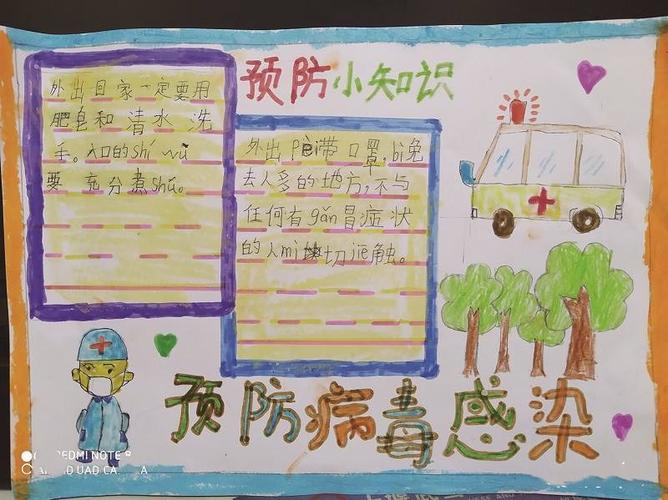 预防小知识
外出回家一定要用
肥皂和清水洗
手。入口的shí wù
要充分煮shú。
外出pèi带口罩,bì免
去人多的地方,不与
任何有gǎn冒症状
的人mì切jiē触。
预防病毒感染
REDMI NOTE 8
AI QUAD CAMERA